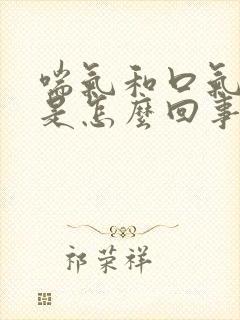 喘氣和口氣
是怎麼回事
祁荣祥